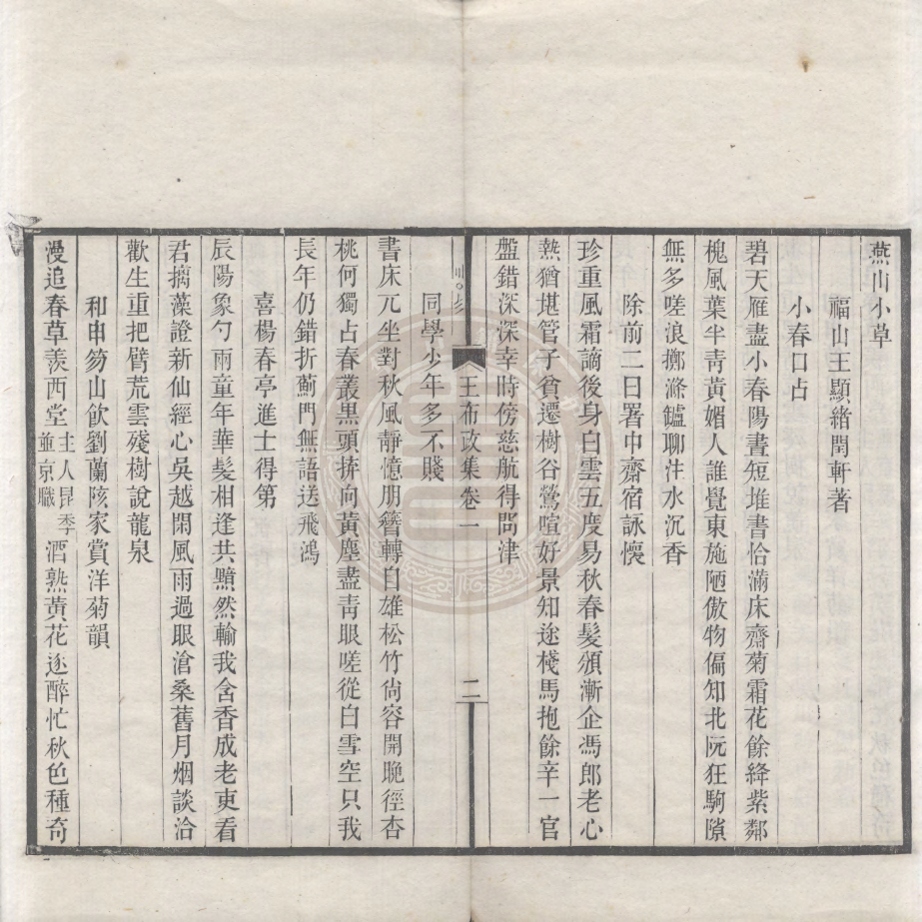 燕山小草
福山王顯緒閏軒著
小春口占
碧天雁盡小春陽晝短堆書恰滿床齋菊霜花餘絳紫鄰
槐風葉半靑黃媚人誰覺東施陋傲物偏知北阮狂駒隙
無多嗟浪擲滌鑪聊注水沉香
除前二日署中齋宿詠懷
珍重風霜謫後身白雲五度易秋春髮頒漸企馮郎老心
熱猶堪管子貧遷樹谷鶯喧好景知途棧馬抱餘辛一官
盤錯深深幸時傍慈航得問津
王布政集卷一
二
同學少年多不賤
書床兀坐對秋風靜憶朋簪轉自雄松竹尙容開晚徑杏
桃何獨占春叢黑頭拚向黃塵盡靑眼嗟從白雪空只我
長年仍錯折薊門無語送飛鴻
喜楊春亭進士得第
辰陽象勺雨童年華髮相逢共黯然輸我含香成老吏看
君摛藻證新仙經心吳越閑風雨過眼滄桑舊月烟談洽
歡生重把臂荒雲殘樹說龍泉
和申笏山飲劉蘭陔家賞洋菊韻
漫追春草羨西堂主人昆季並京職酒熟黃花逐醉忙秋色種奇